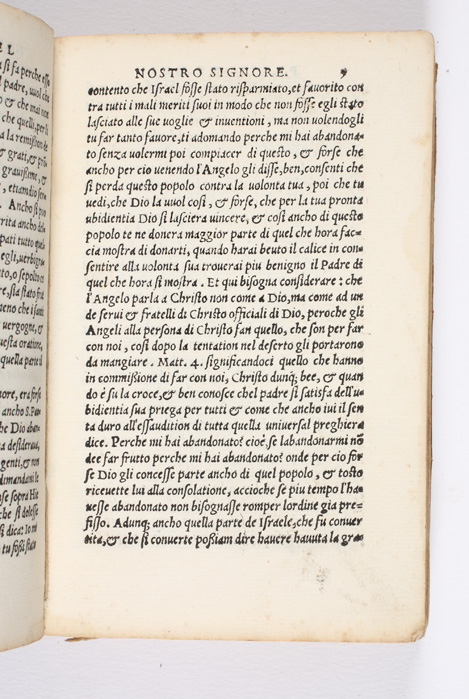 NOSTRO SIGNORE. 9
contento che Israel fosse stato risparmiato, et favorito con
tra tutti i mali meriti suoi in modo che non fosse egli stato
lasciato alle sue voglie & inventioni, ma non volendogli
tu far tanto favore, ti adomando perche mi hai abandona-
to senza volermi poi compiacer di questo, & forse che
ancho per cio venendo l'Angelo gli disse, ben, consenti che
si perda questo popolo contra la volonta tua, poi che tu
uedi, che Dio la vuol cosi, & forse, che per la tua pronta
ubidientia Dio si lasciera uincere, & cosi ancho di questo
popolo te ne donera maggior parte di quel che hora fac-
cia mostra di donarti, quando harai beuto il calice in con-
sentire alla volonta sua trouerai piu benigno il Padre di
quel che hora si mostra. Et qui bisogna considerare: che
l'Angelo parla a Christo non come a Dio, ma come ad un
de serui & fratelli di Christo officiali di Dio, peroche gli
Angeli alla persona di Christo fan quello, che son per far
con noi, cosi dopo la tentation nel deserto gli portarono
da mangiare. Matt. 4. significandoci quello che hanno
in commißione di far con noi, Christo dunq; bee, & quan
do è su la croce, & ben conosce chel padre si satisfa dell'u-
bidientia sua priega per tutti & come che ancho iui il sen
ta duro all'essaudition di tutta quella universal preghiera
dice. Perche mi hai abandonato? cioè, se labandonarmi nō
dee far frutto perche mi hai abandonato? onde per cio for
se Dio gli concesse parte ancho di quel popolo, & tosto
riceuette lui alla consolatione, accioche se piu tempo l'ha-
uesse abandonato non bisognasse romper lordine gia pre-
fisso. Adunq; ancho quella parte de Israele, che fu conuer
tita, & che si converte poßiam dire hauere hauuta la gra-